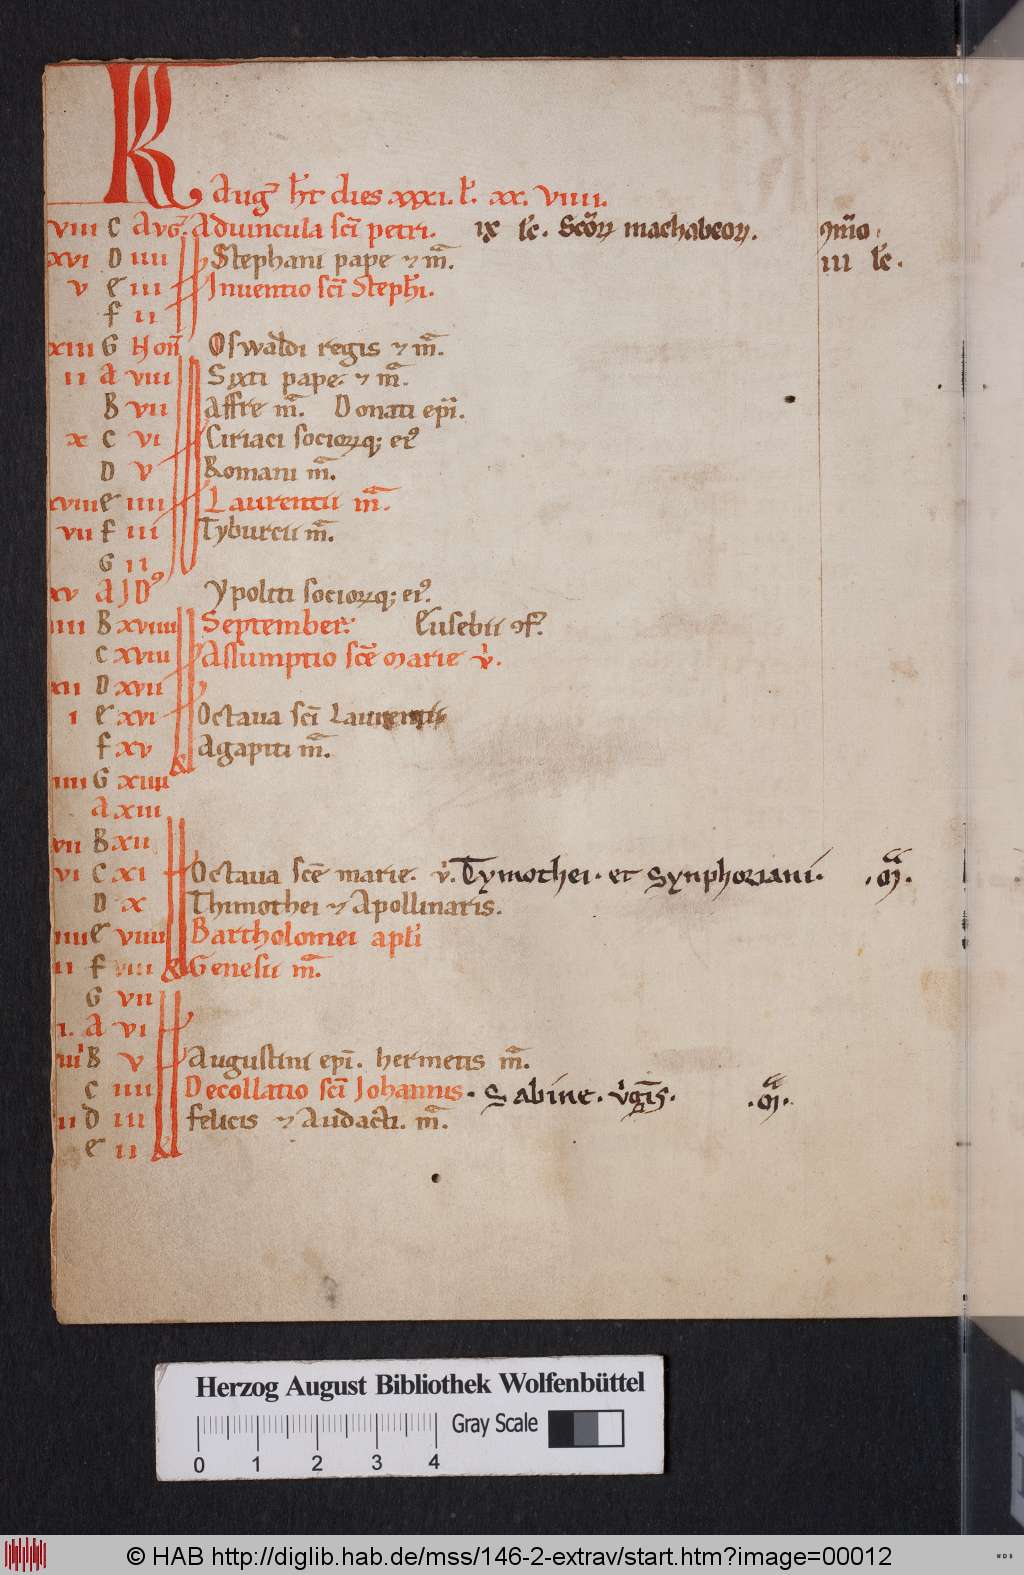 K Aug᷒ ħt dies xxxi. l᷒. xx. viiii.
viii C Aug᷒. Aduincula sc̄i petri. ix lc̄. Sc̄oꝝ machabeoꝝ.
xvi D iiii Stephani pape ⁊ m̄. iii lc̄.
v e iii Inuentio sc̄i Stepħi.
f ii
xiii G Hoñ Oswaldi regis ⁊ m̄.
ii A viii Sixti pape. ⁊ m̄.
B vii Affre m̄. Donati ep̄i.
x C vi Ciriaci socioꝝq; ei᷒
D v Romani m̄.
xviii e iiii Laurentii m̄.
vii f iii Tyburcii m̄.
G ii
xv A ID᷒ Ypoliti socioꝝq; ei᷒.
iiii B xviiii September. Eusebii ꝯf᷒.
C xviii Assumptio sc̄e marie v̄.
xii D xvii
i e xvi Octaua sc̄i Laurentii
f xv Agapiti m̄.
iiii G xiiii
A xiii
vii B xii
vi C xi Octaua sc̄e marie. v̄. Tymothei. et Synphoriani. .m̄.
D x Thimothei ⁊ Apollinaris.
iiii e viiii Bartholomei apl̄i
ii f viii Genesii m̄.
G vii
i. A vi
iii B v Augustini ep̄i. hermetis m̄.
C iiii Decollatio sc̄i Johannis. Sabine. v̄gīs. .m̄.
ii D iii felicis ⁊ Audacti. m̄.
e ii
Herzog August Bibliothek Wolfenbüttel
Gray Scale
0 1 2 3 4
© HAB http://diglib.hab.de/mss/146-2-extrav/start.htm?image=00012